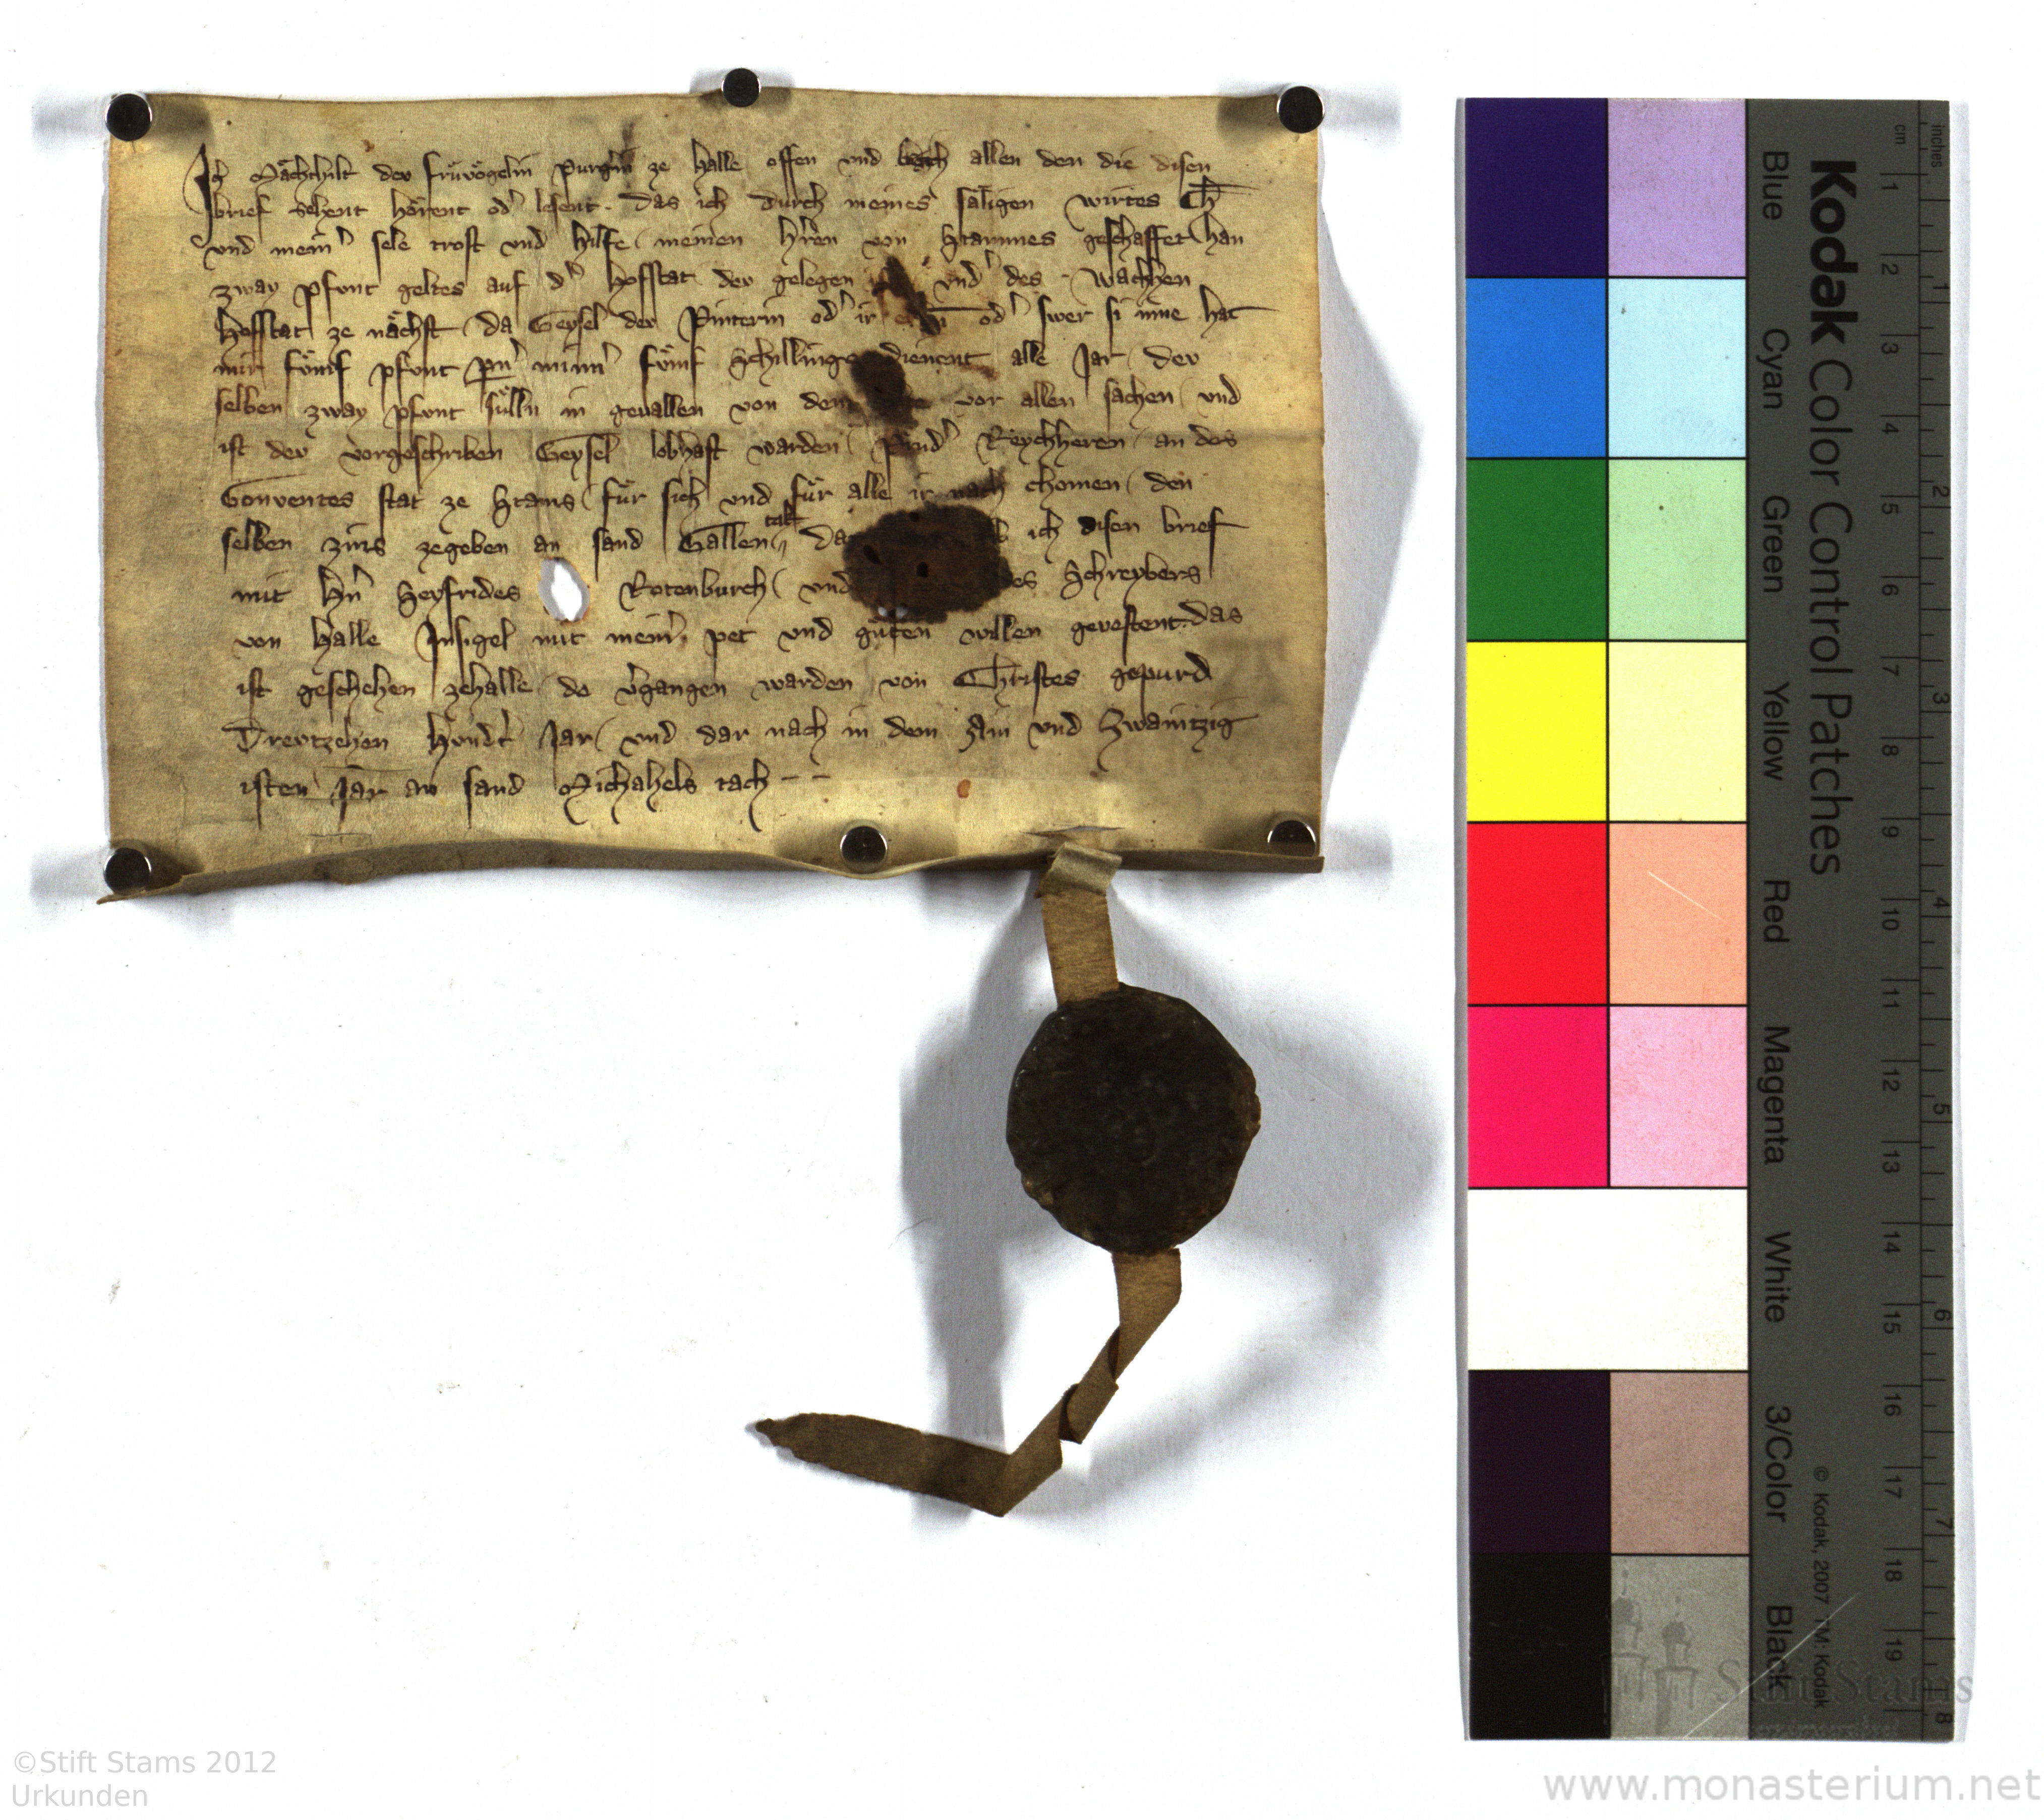 Ich Mächthilt der früvögelin Purḡin ze Halle offen und allen den die disen
brief sehent hörent od' lesent. das ich durch meines säligen wirtes Ch̄
und mein' sele trost und hilfe meinen h'ren von Stammes geschaffet han
zway pfunt geltes auf d' hofstat der gelegen und' des wachhen
hofstat ze nächst da Geysel der Pinterin od' ir od' swer si inne hat
mir fömf pfunt p̄n' minn' fömf Schillinge dienent alle Jar der
selben zway pfunt sülln in geuallen von dem vor allen sachen und
ist der vorgeschriben Geysel lobhaft warden Reychheren an des
Conventes stat ze Stams für sich und für alle ir nach chomen den
selben zins zegeben an sand Gallen tak ich disen brief
mit H'n Seyfrides Rotenburch und des Schreybers
von Halle Insigel mit mein' pet und güten willen gevestent. das
ist geschehen zehalle do v'gangen warden von Christes gepurd
Dreutzehen hundt' Jar und dar nach in dem Ain und Zwaintzig
isten Jar an sand Michahels tach
Kodak Color Control Patches
© Kodak, 2007 TM: Kodak
Blue Cyan Green Yellow Red Magenta White 3/Color Black
cm 1 2 3 4 5 6 7 8 9 10 11 12 13 14 15 16 17 18 19
inches 1 2 3 4 5 6 7 8
Stift Stams
©Stift Stams 2012
Urkunden
www.monasterium.net